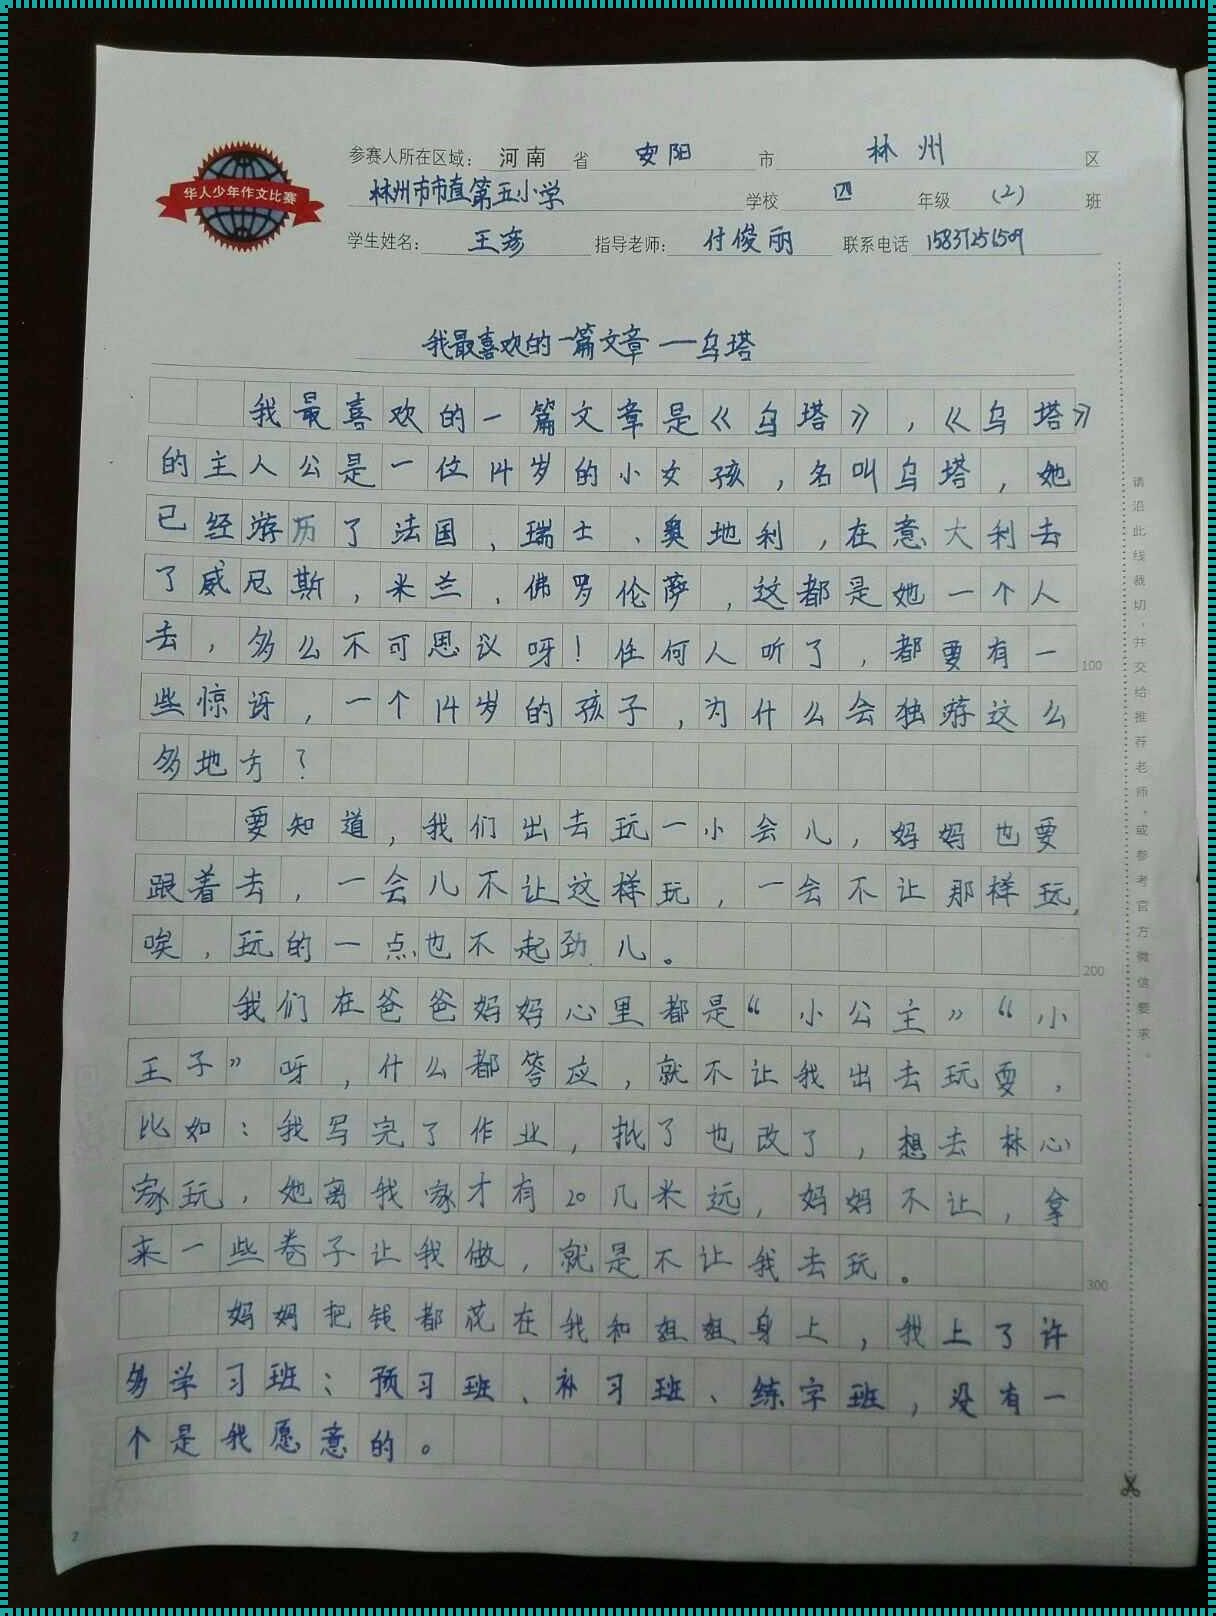 华人少年作文比赛
参赛人所在区域：河南省 安阳 市 林州 区
林州市市直第五小学 学校 四 年级 (2) 班
学生姓名：王彦 指导老师：付俊丽 联系电话
我最喜欢的一篇文章——乌塔
我最喜欢的一篇文章是《乌塔》，《乌塔》
的主人公是一位14岁的小女孩，名叫乌塔，她
已经游历了法国、瑞士、奥地利，在意大利去
了威尼斯，米兰、佛罗伦萨，这都是她一个人
去，多么不可思议呀！任何人听了，都要有一
100
些惊讶，一个14岁的孩子，为什么会独游这么
多地方？
要知道，我们出去玩一小会儿，妈妈也要
跟着去，一会儿不让这样玩，一会不让那样玩，
唉，玩的一点也不起劲儿。
200
我们在爸爸妈妈心里都是“小公主”“小
王子”呀，什么都答应，就不让我出去玩耍，
比如：我写完了作业，批了也改了，想去林心
家玩，她离我家才有20几米远，妈妈不让，拿
来一些卷子让我做，就是不让我去玩。
300
妈妈把钱都花在我和姐姐身上，我上了许
多学习班：预习班、补习班、练字班，没有一
个是我愿意的。
请沿此线裁切，并交给推荐老师，或参考官方微信要求。
2